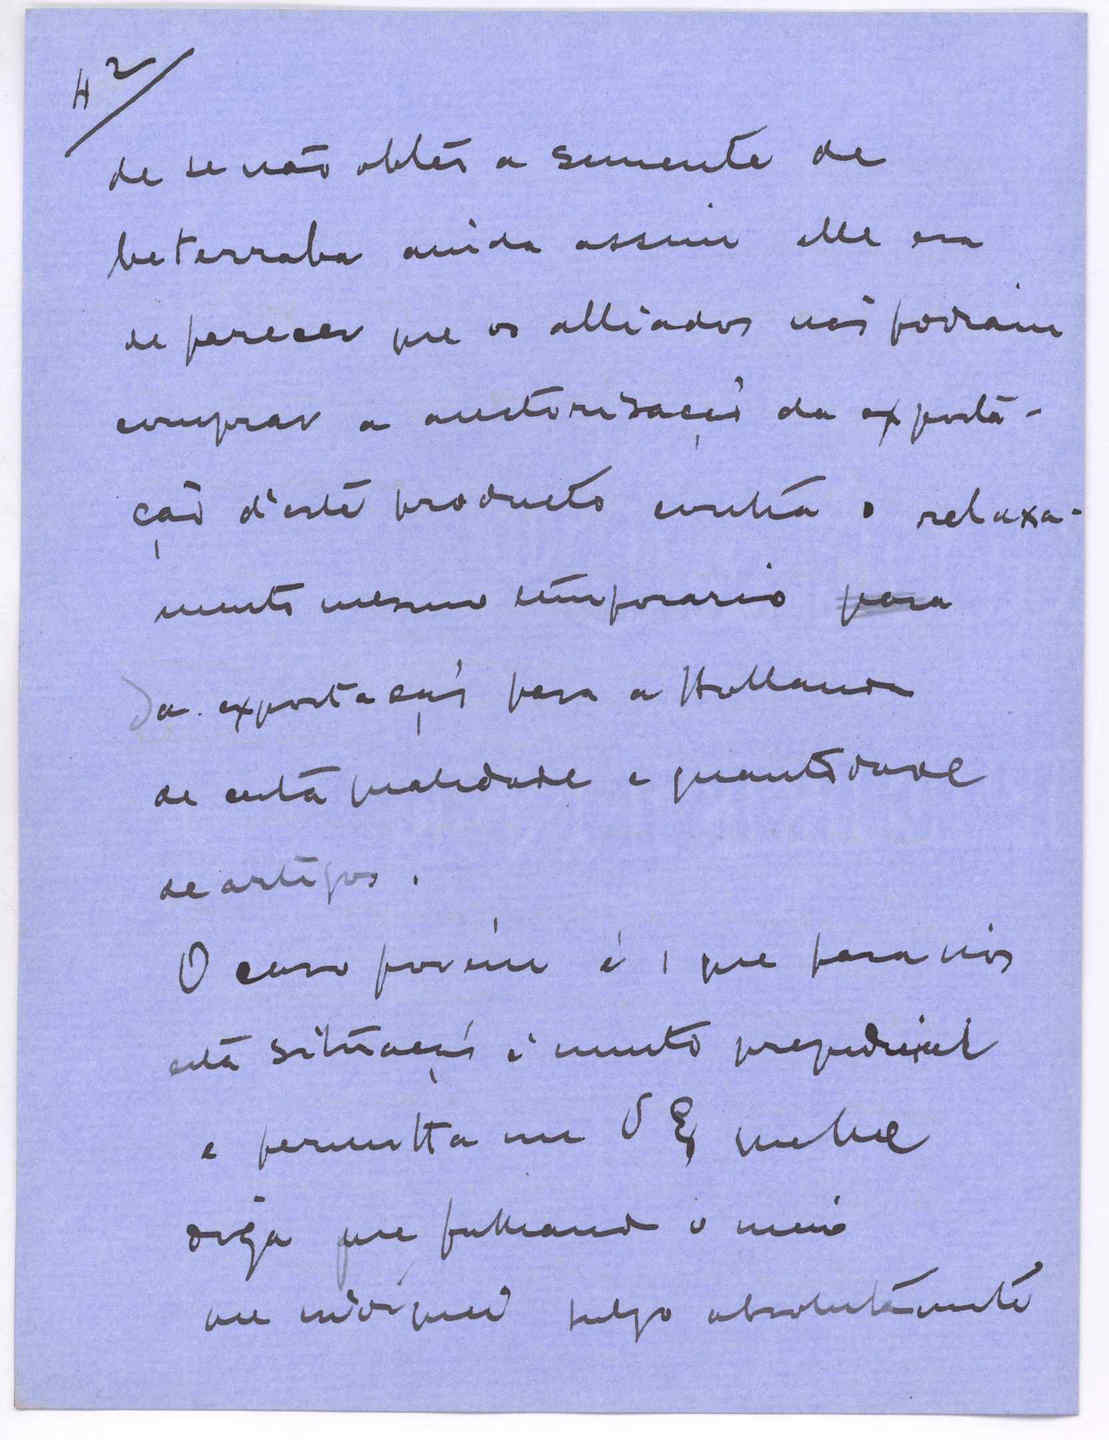 42
de se não obter a semente de
beterraba ainda assim elle era
de parecer que os alliados não podiam
comprar a auctorisação da exporta-
ção d'este producto contra o relaxa-
mento mesmo temporario para
da exportação para a Hollanda
de certa qualidade e quantidade
de artigos.
O caso porém é que para nós
esta situação é muito prejudicial
e permitta me V Ex que lhe
diga que falhando o meio
que indiquei julgo absolutamente